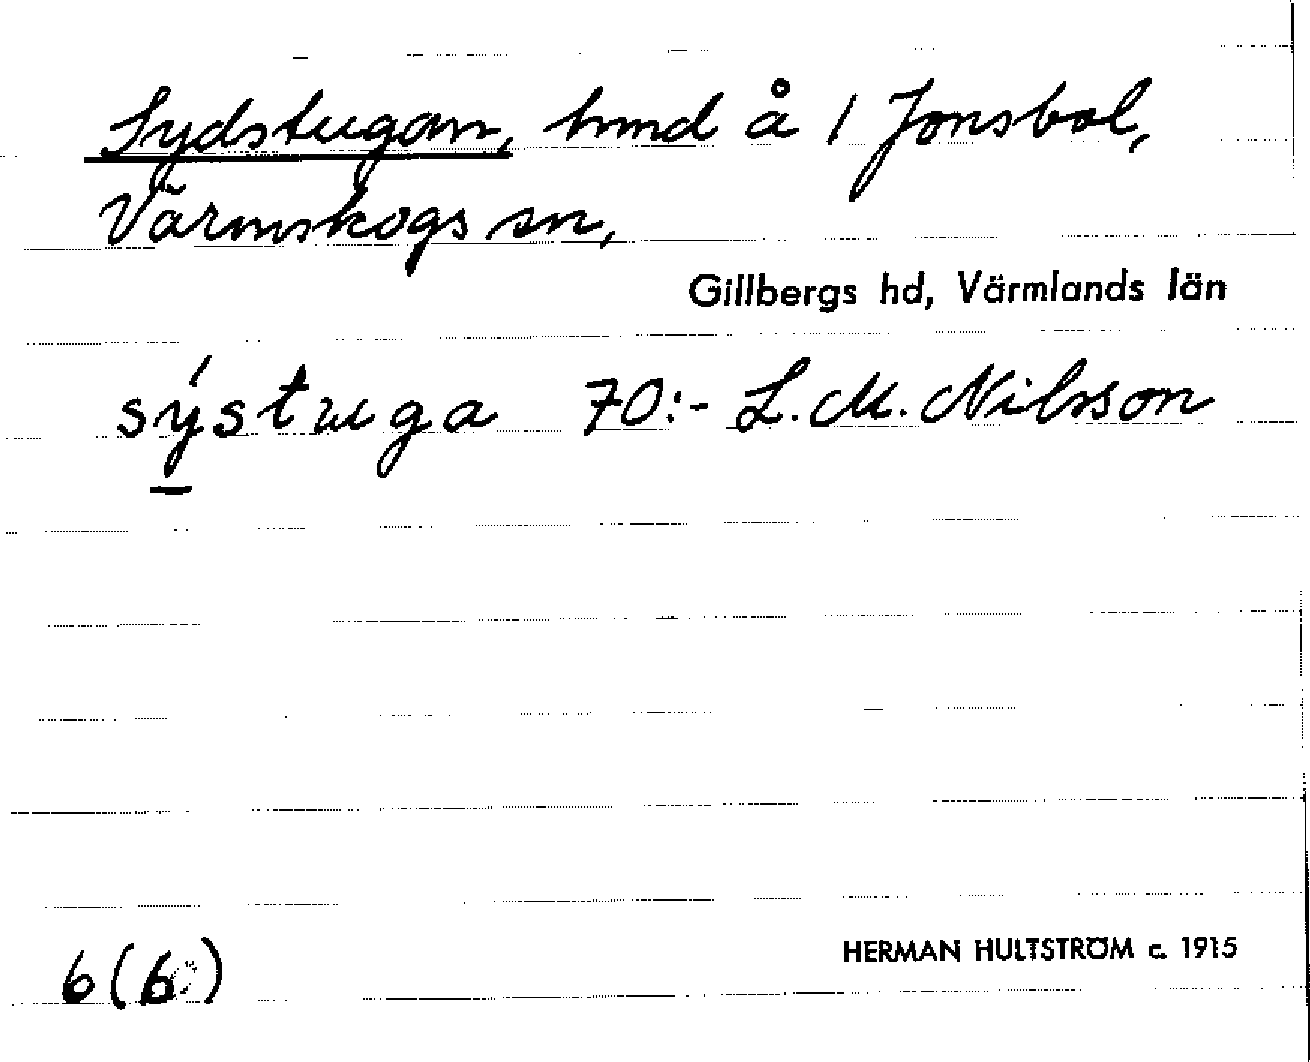 Sydstugan, hmd å 1 Jonsbol,
Värmskogs sn,
Gillbergs hd, Värmlands län
sýstuga 70:- L.M. Nilsson
6 (6)
HERMAN HULTSTRÖM c. 1915